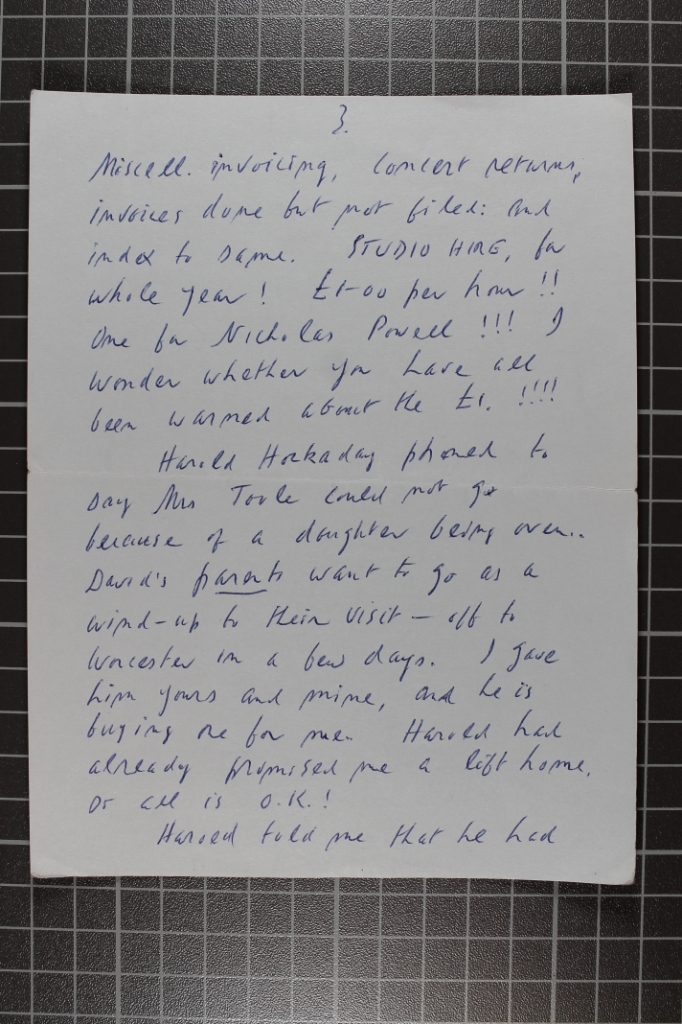 3.
Miscell. invoicing, Concert returns,
invoices done but not filed: and
index to same. STUDIO HIRE, for
whole year! £1-00 per hour!!
One for Nicholas Powell!!! I
wonder whether you have all
been warned about the £1. !!!!
Harold Hockaday phoned to
say Mrs Toole could not go
because of a daughter being over..
David's parents want to go as a
wind-up to their visit — off to
Worcester in a few days. I gave
him yours and mine, and he is
buying one for me. Harold had
already promised me a lift home,
so all is O.K.!
Harold told me that he had